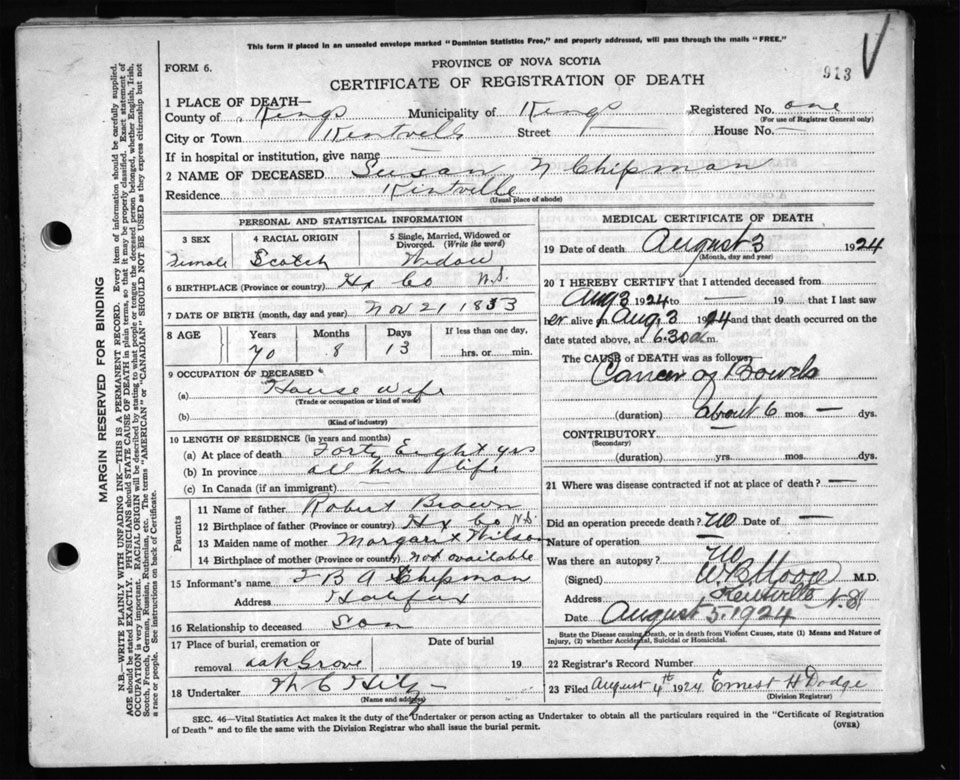 This form if placed in an unsealed envelope marked "Dominion Statistics Free," and properly addressed, will pass through the mails "FREE."
FORM 6.
PROVINCE OF NOVA SCOTIA
913
CERTIFICATE OF REGISTRATION OF DEATH
1 PLACE OF DEATH—
County of Kings Municipality of Kings Registered No. one
(For use of Registrar General only)
City or Town Kentville Street — House No. —
If in hospital or institution, give name —
2 NAME OF DECEASED Susan N Chipman
Residence Kentville
(Usual place of abode)
PERSONAL AND STATISTICAL INFORMATION
3 SEX 4 RACIAL ORIGIN 5 Single, Married, Widowed or Divorced. (Write the word)
Female Scotch Widow
6 BIRTHPLACE (Province or country) Hx Co N.S.
7 DATE OF BIRTH (month, day and year) Nov 21 1853
8 AGE Years Months Days If less than one day,
70 8 13 hrs. or min.
9 OCCUPATION OF DECEASED
(a) House wife
(Trade or occupation or kind of work)
(b)
(Kind of industry)
10 LENGTH OF RESIDENCE (in years and months)
(a) At place of death Forty Eight yrs
(b) In province all her life
(c) In Canada (if an immigrant) —
Parents
11 Name of father Robert Brown
12 Birthplace of father (Province or country) Hx Co N.S.
13 Maiden name of mother Margaret Wilson
14 Birthplace of mother (Province or country) not available
15 Informant's name F B A Chipman
Address Halifax
16 Relationship to deceased Son
17 Place of burial, cremation or Date of burial
removal oak Grove 19
18 Undertaker
(Name and address)
MEDICAL CERTIFICATE OF DEATH
19 Date of death August 3 1924
(Month, day and year)
20 I HEREBY CERTIFY that I attended deceased from
Aug 3 1924 to — 19 that I last saw
her alive on Aug. 3 1924 and that death occurred on
date stated above, at 6.30 a.m.
The CAUSE of DEATH was as follows—
Cancer of Bowels
(duration) about 6 mos. — dys.
CONTRIBUTORY —
(Secondary)
(duration) yrs. mos. dys.
21 Where was disease contracted if not at place of death? —
Did an operation precede death? no Date of —
Nature of operation —
Was there an autopsy? no
(Signed) W B Moore M.D.
Address Kentville N.S.
Date August 5. 1924
State the Disease causing Death, or in death from Violent Causes, state (1) Means and Nature of
Injury, (2) whether Accidental, Suicidal or Homicidal.
22 Registrar's Record Number
23 Filed August 4th 1924 Ernest H Dodge
(Division Registrar)
SEC. 46—Vital Statistics Act makes it the duty of the Undertaker or person acting as Undertaker to obtain all the particulars required in the "Certificate of Registration
of Death" and to file the same with the Division Registrar who shall issue the burial permit. (OVER)
MARGIN RESERVED FOR BINDING
N.B.—WRITE PLAINLY WITH UNFADING INK—THIS IS A PERMANENT RECORD. Every item of information should be carefully supplied.
AGE should be stated EXACTLY. PHYSICIANS should STATE CAUSE OF DEATH in plain terms, so that it may be properly classified. Exact statement of
OCCUPATION is very important. RACIAL ORIGIN will be described by stating to what people or tongue the deceased person belonged, whether English, Irish,
Scotch, French, German, Russian, Ruthenian, etc. The terms "AMERICAN" or "CANADIAN" SHOULD NOT BE USED as they express citizenship but not
a race or people. See instructions on back of Certificate.